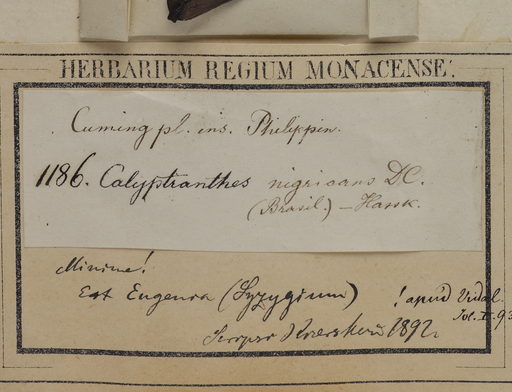 HERBARIUM REGIUM MONACENSE.
Cuming pl. ins. Philippin.
1186. Calyptranthes nigricans DC.
(Brasil.) — Hassk.
Minime!
Est Eugenia (Syzygium) ! apud Vidal.
1892.